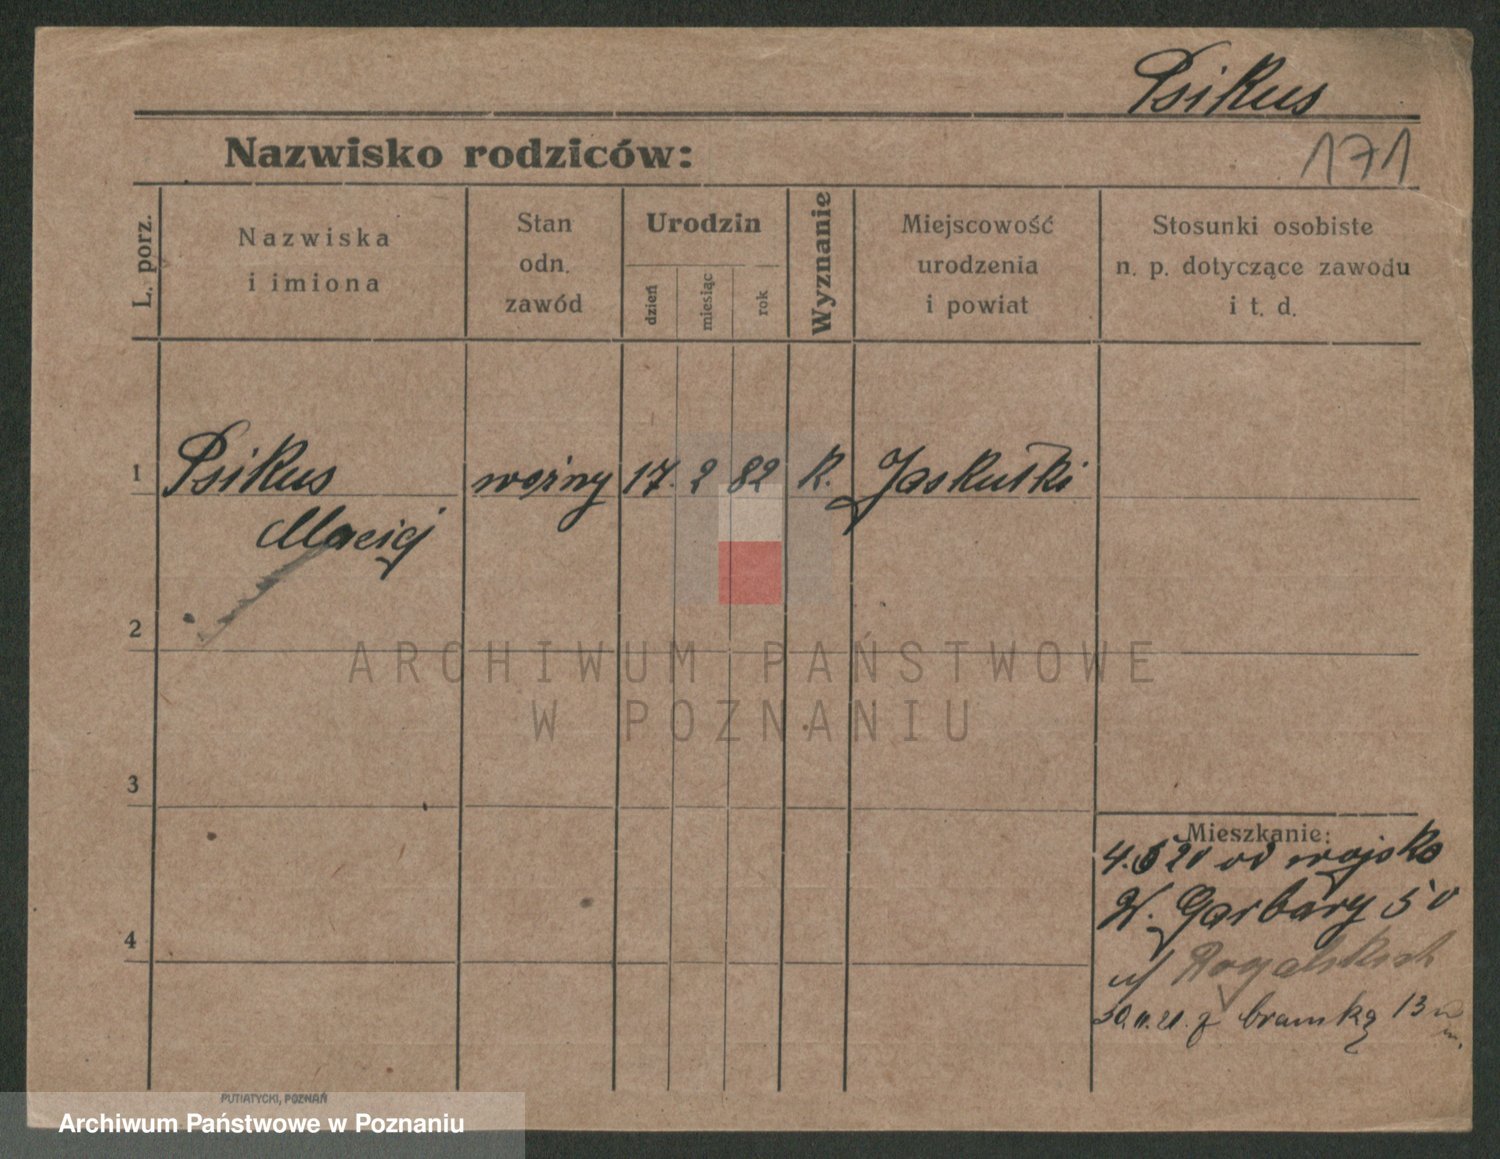 Psikus
171
Nazwisko rodziców:
L. porz.
Nazwiska
i imiona
Stan
odn.
zawód
Urodzin
dzień
miesiąc
rok
Wyznanie
Miejscowość
urodzenia
i powiat
Stosunki osobiste
n. p. dotyczące zawodu
i t. d.
1 Psikus woźny 17. 2 82 K. Jaskułki
Maciej
2
ARCHIWUM PAŃSTWOWE
W POZNANIU
3
Mieszkanie:
20 od wojska
W. Garbary 50
4
u/ Rogalskich
bramką 13
PUTIATYCKI, POZNAŃ
Archiwum Państwowe w Poznaniu